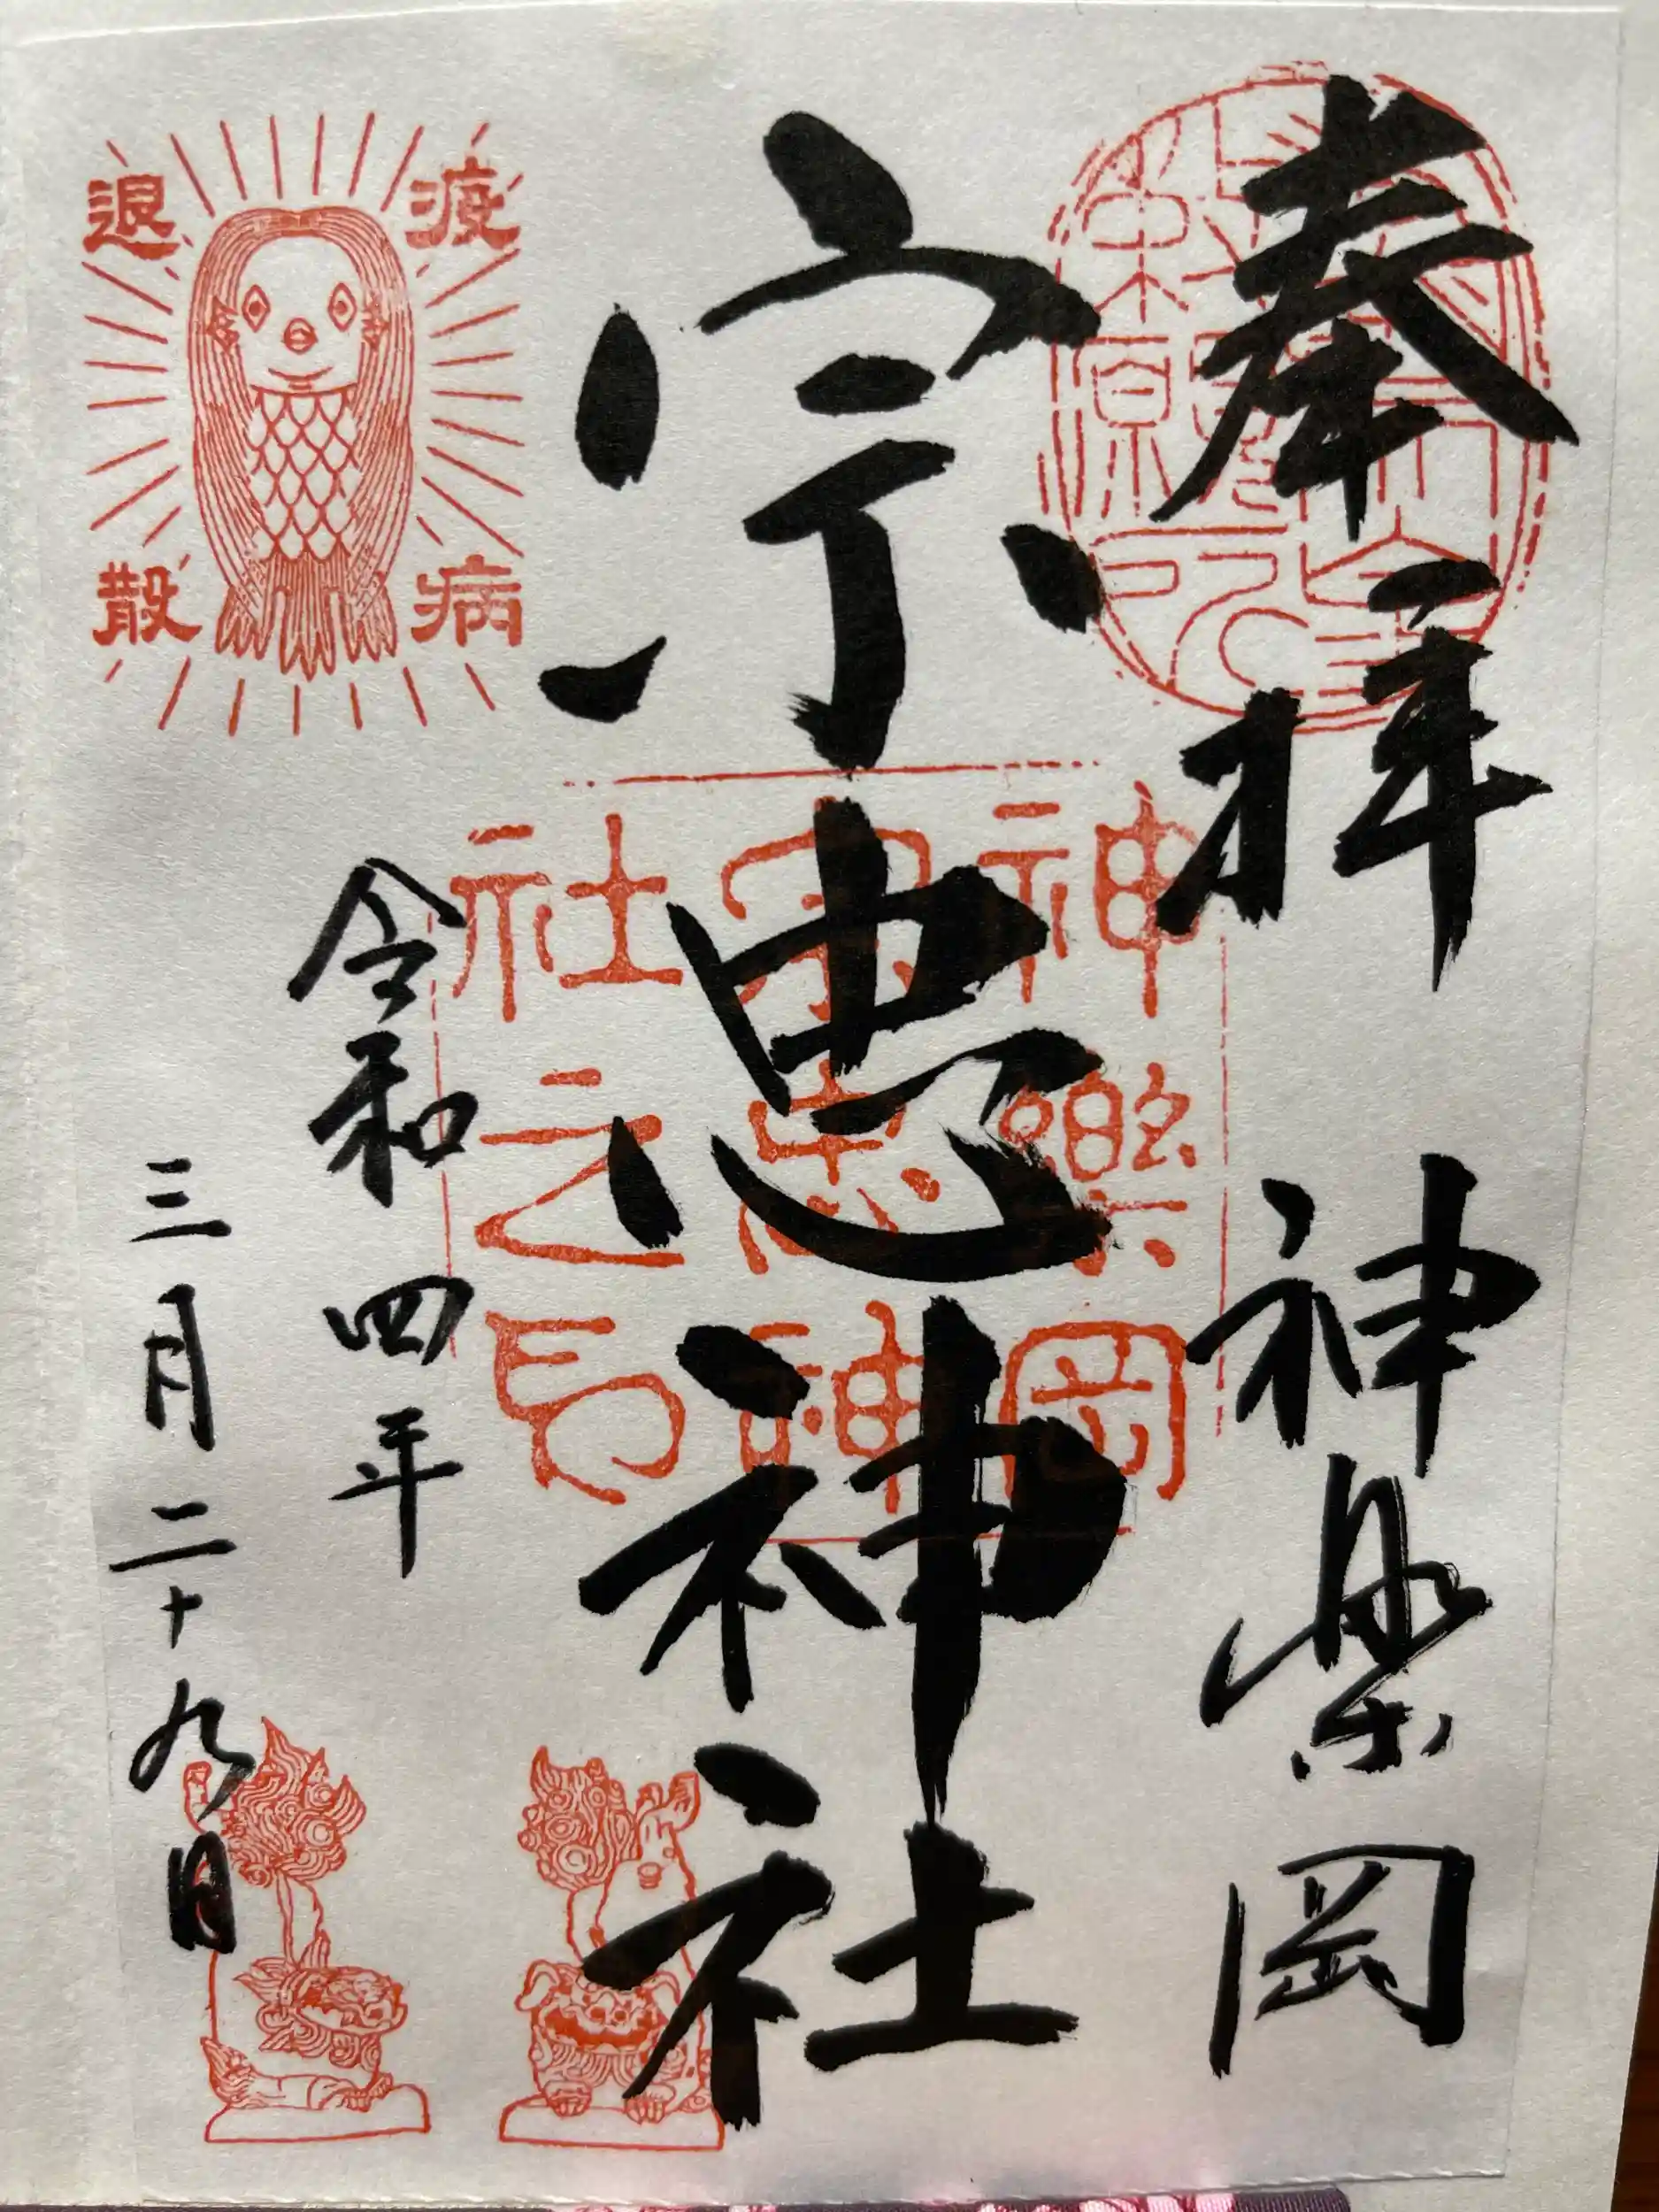 奉拝
神楽岡
宗忠神社
神樂岡
宗忠神
社之印
令和四年
三月二十九日
疫病
退散